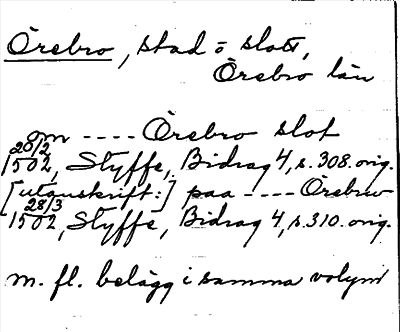 Örebro, stad o slott,
Örebro län
om ---- Örebro slot
20/2
1502, Styffe, Bidrag 4, s. 308. orig.
[utanskrift:] paa ---- Örebro
28/3
1502, Styffe, Bidrag 4, s. 310. orig.
m. fl. belägg i samma volym